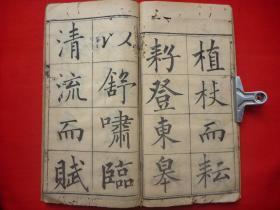 植杖而耘
耔登東皋
以舒嘯臨
清流而賦